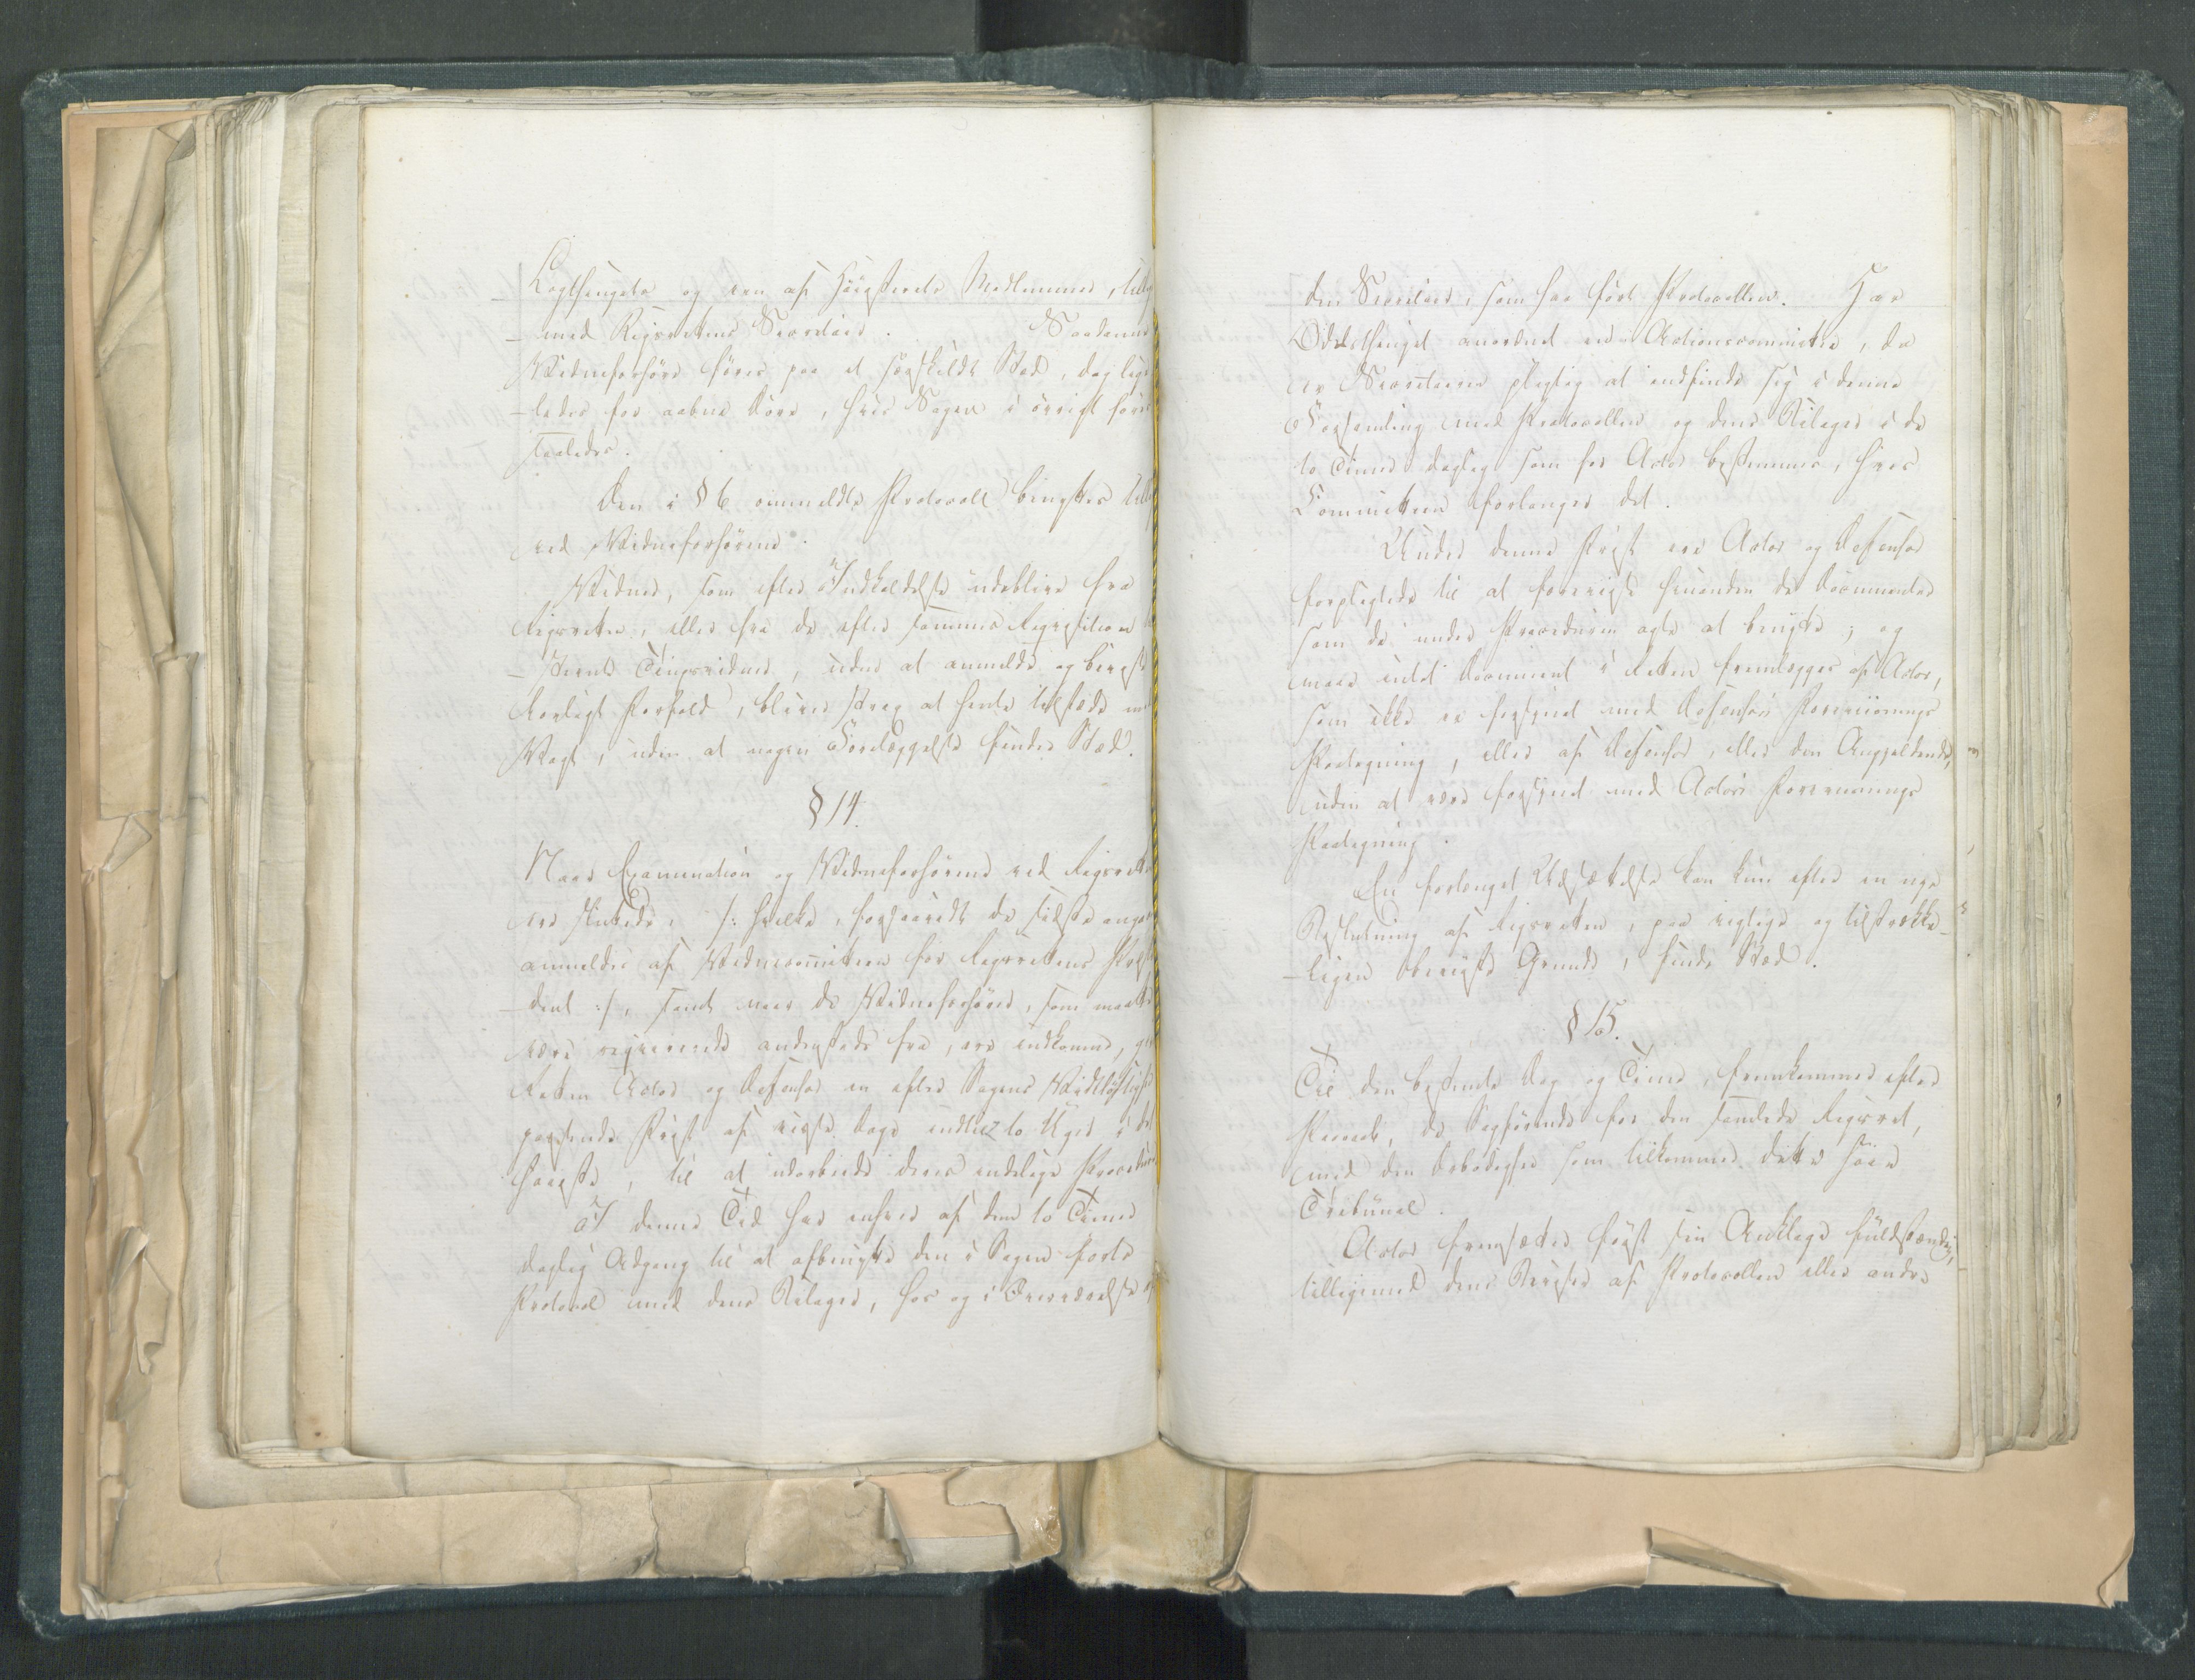 Lagthinget og een af Høiesterets Medlemmer, till
- med Rigsrettens Secretair. Saadanne
Vidneforhør føres paa et særskildt Sted, dog lige
- ledes for aabne Døre, hvis Sagen i øvrigt
saaledes.
Den i § 6 ommeldte Protocoll benyttes
ved Vidneforhørene.
Vidner, som efter Indkaldelse udeblive fra
Rigsretten, eller fra de efter sammes Reqvisition
Tingsvidner, uden at anmelde og bevise
lovligt Forfald, blive strax at hente tilstede med
Vagt, uden at nogen Forelæggelse finder Sted.
§ 14.
Naar Examination og Vidneforhørene ved Rigsretten
ere sluttede, /: hvilke, forsaavidt de sidste angaaer
anmeldes af Vidnecomiteen for Rigsrettens Præsi
- dent :/, samt naar de Vidneforhører, som maatte
være reqvirerede andensteds fra, ere indkomne, giver
Retten Actor og Defensor en efter Sagens Vidtløftighed
passende Frist af visse Dage indtil to Uger i det
høieste, til at udarbeide deres endelige Procedure
I denne Tid har enhver af dem to Timer
daglig Adgang til at afbenytte den i Sagen førte
Protocol med dens Bilager, hos og i Overværelse af
den Secretair, som har ført Protocollen. Har
Odelsthinget anordnet en Actionscommitee, da
er Secretairen pligtig at indfinde sig i denne
Forsamling med Protocollen og dens Bilager i de
to Timer daglig som for Actor bestemmes, hvis
Committeen forlanger det.
Under denne Frist ere Actor og Defensor
forpligtede til at forevise hinanden de Documenter
som de under Proceduren agte at benytte; og
maae intet Document i Retten fremlægges af Actor,
som ikke er forsynet med Defensors Forevisnings
Paategning, eller af Defensor, eller den Angjeldende,
uden at være forsynet med Actors Forevisnings
Paategning.
En forlænget Udsættelse kan kun efter en nye
Beslutning af Rigsretten, paa vigtige og tilstrække-
- ligen beviste Grunde, finde Sted.
§ 15.
Til den bestemte Dag og Time, fremkommer efter
Paaraab, de Sagførende for den samlede Rigsret,
med den Ærbødighed som tilkommer dette høie
Tribünal.
Actor fremsætter først sin Anklage fuldstændig,
tilligemed dens Beviser af Protocollen eller andre